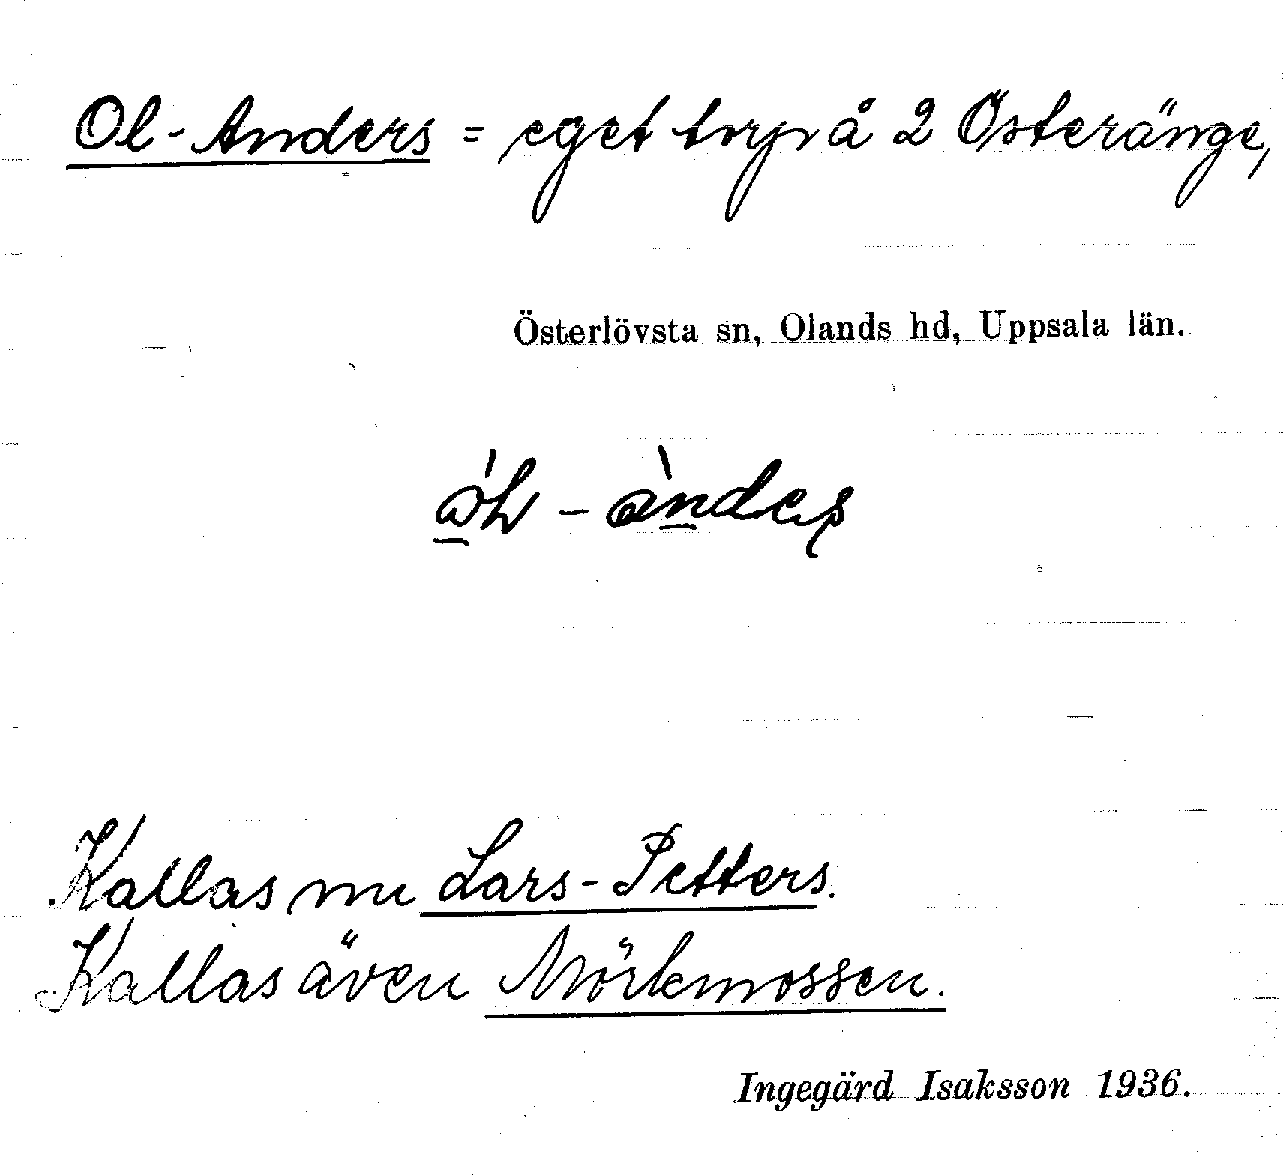 Ol-Anders = eget torp å 2 Österänge,
Österlövsta sn, Olands hd, Uppsala län.
Kallas nu Lars-Petters.
Kallas även Mörkmossen.
Ingegärd Isaksson 1936.